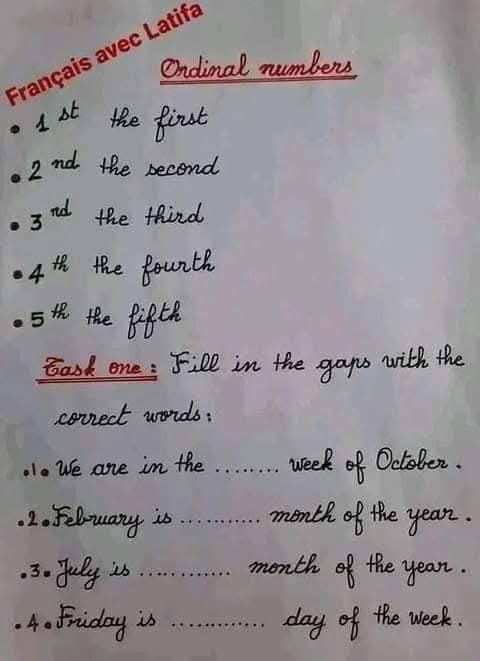 Français avec Latifa
Ordinal numbers
• 1 st the first
• 2 nd the second
• 3 rd the third
• 4 th the fourth
• 5 th the fifth
Task one : Fill in the gaps with the
correct words :
.1. We are in the ........ week of October .
.2. February is ........... month of the year .
.3. July is ............ month of the year .
.4. Friday is ............. day of the week .